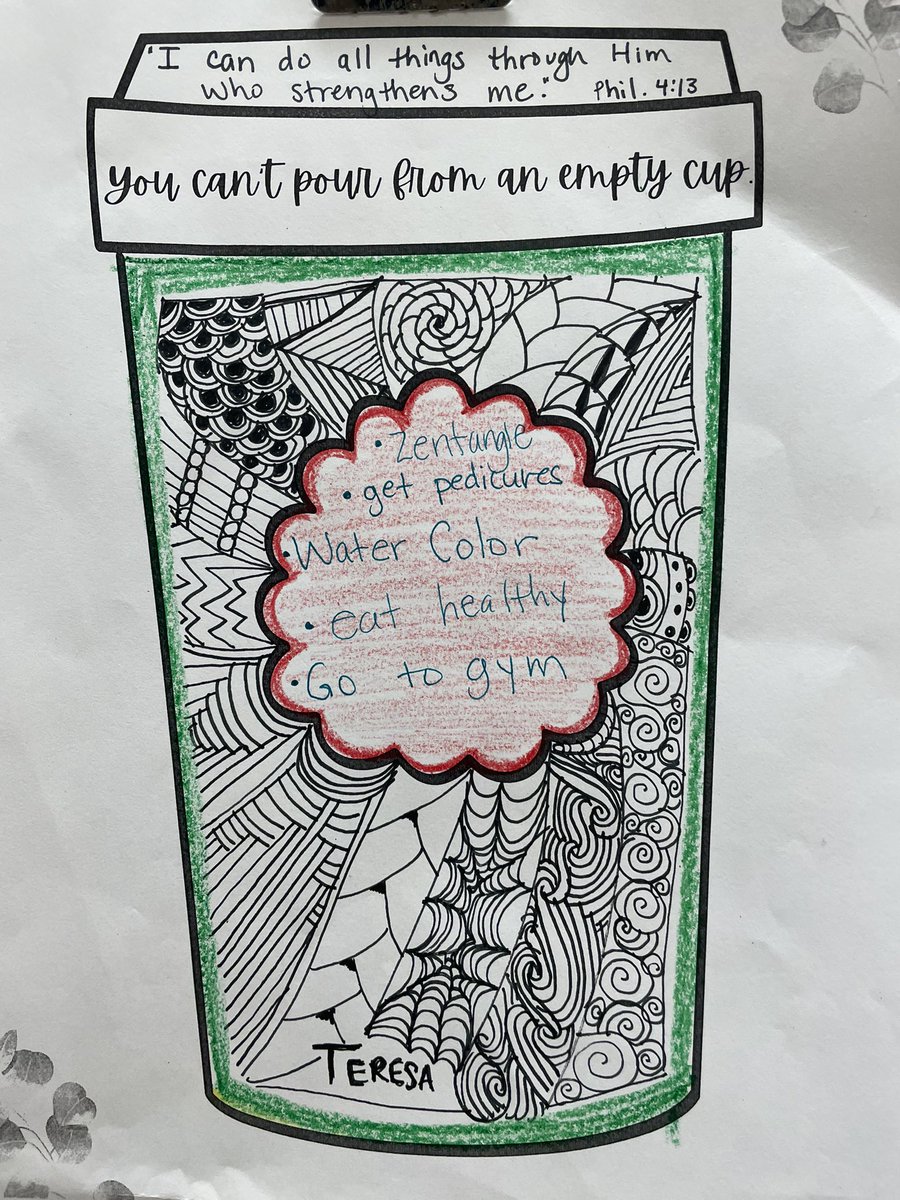 "I can do all things through Him
who strengthens me." Phil. 4:13
you can't pour from an empty cup.
• Zentangle
• get pedicures
• Water Color
• eat healthy
• Go to gym
TERESA